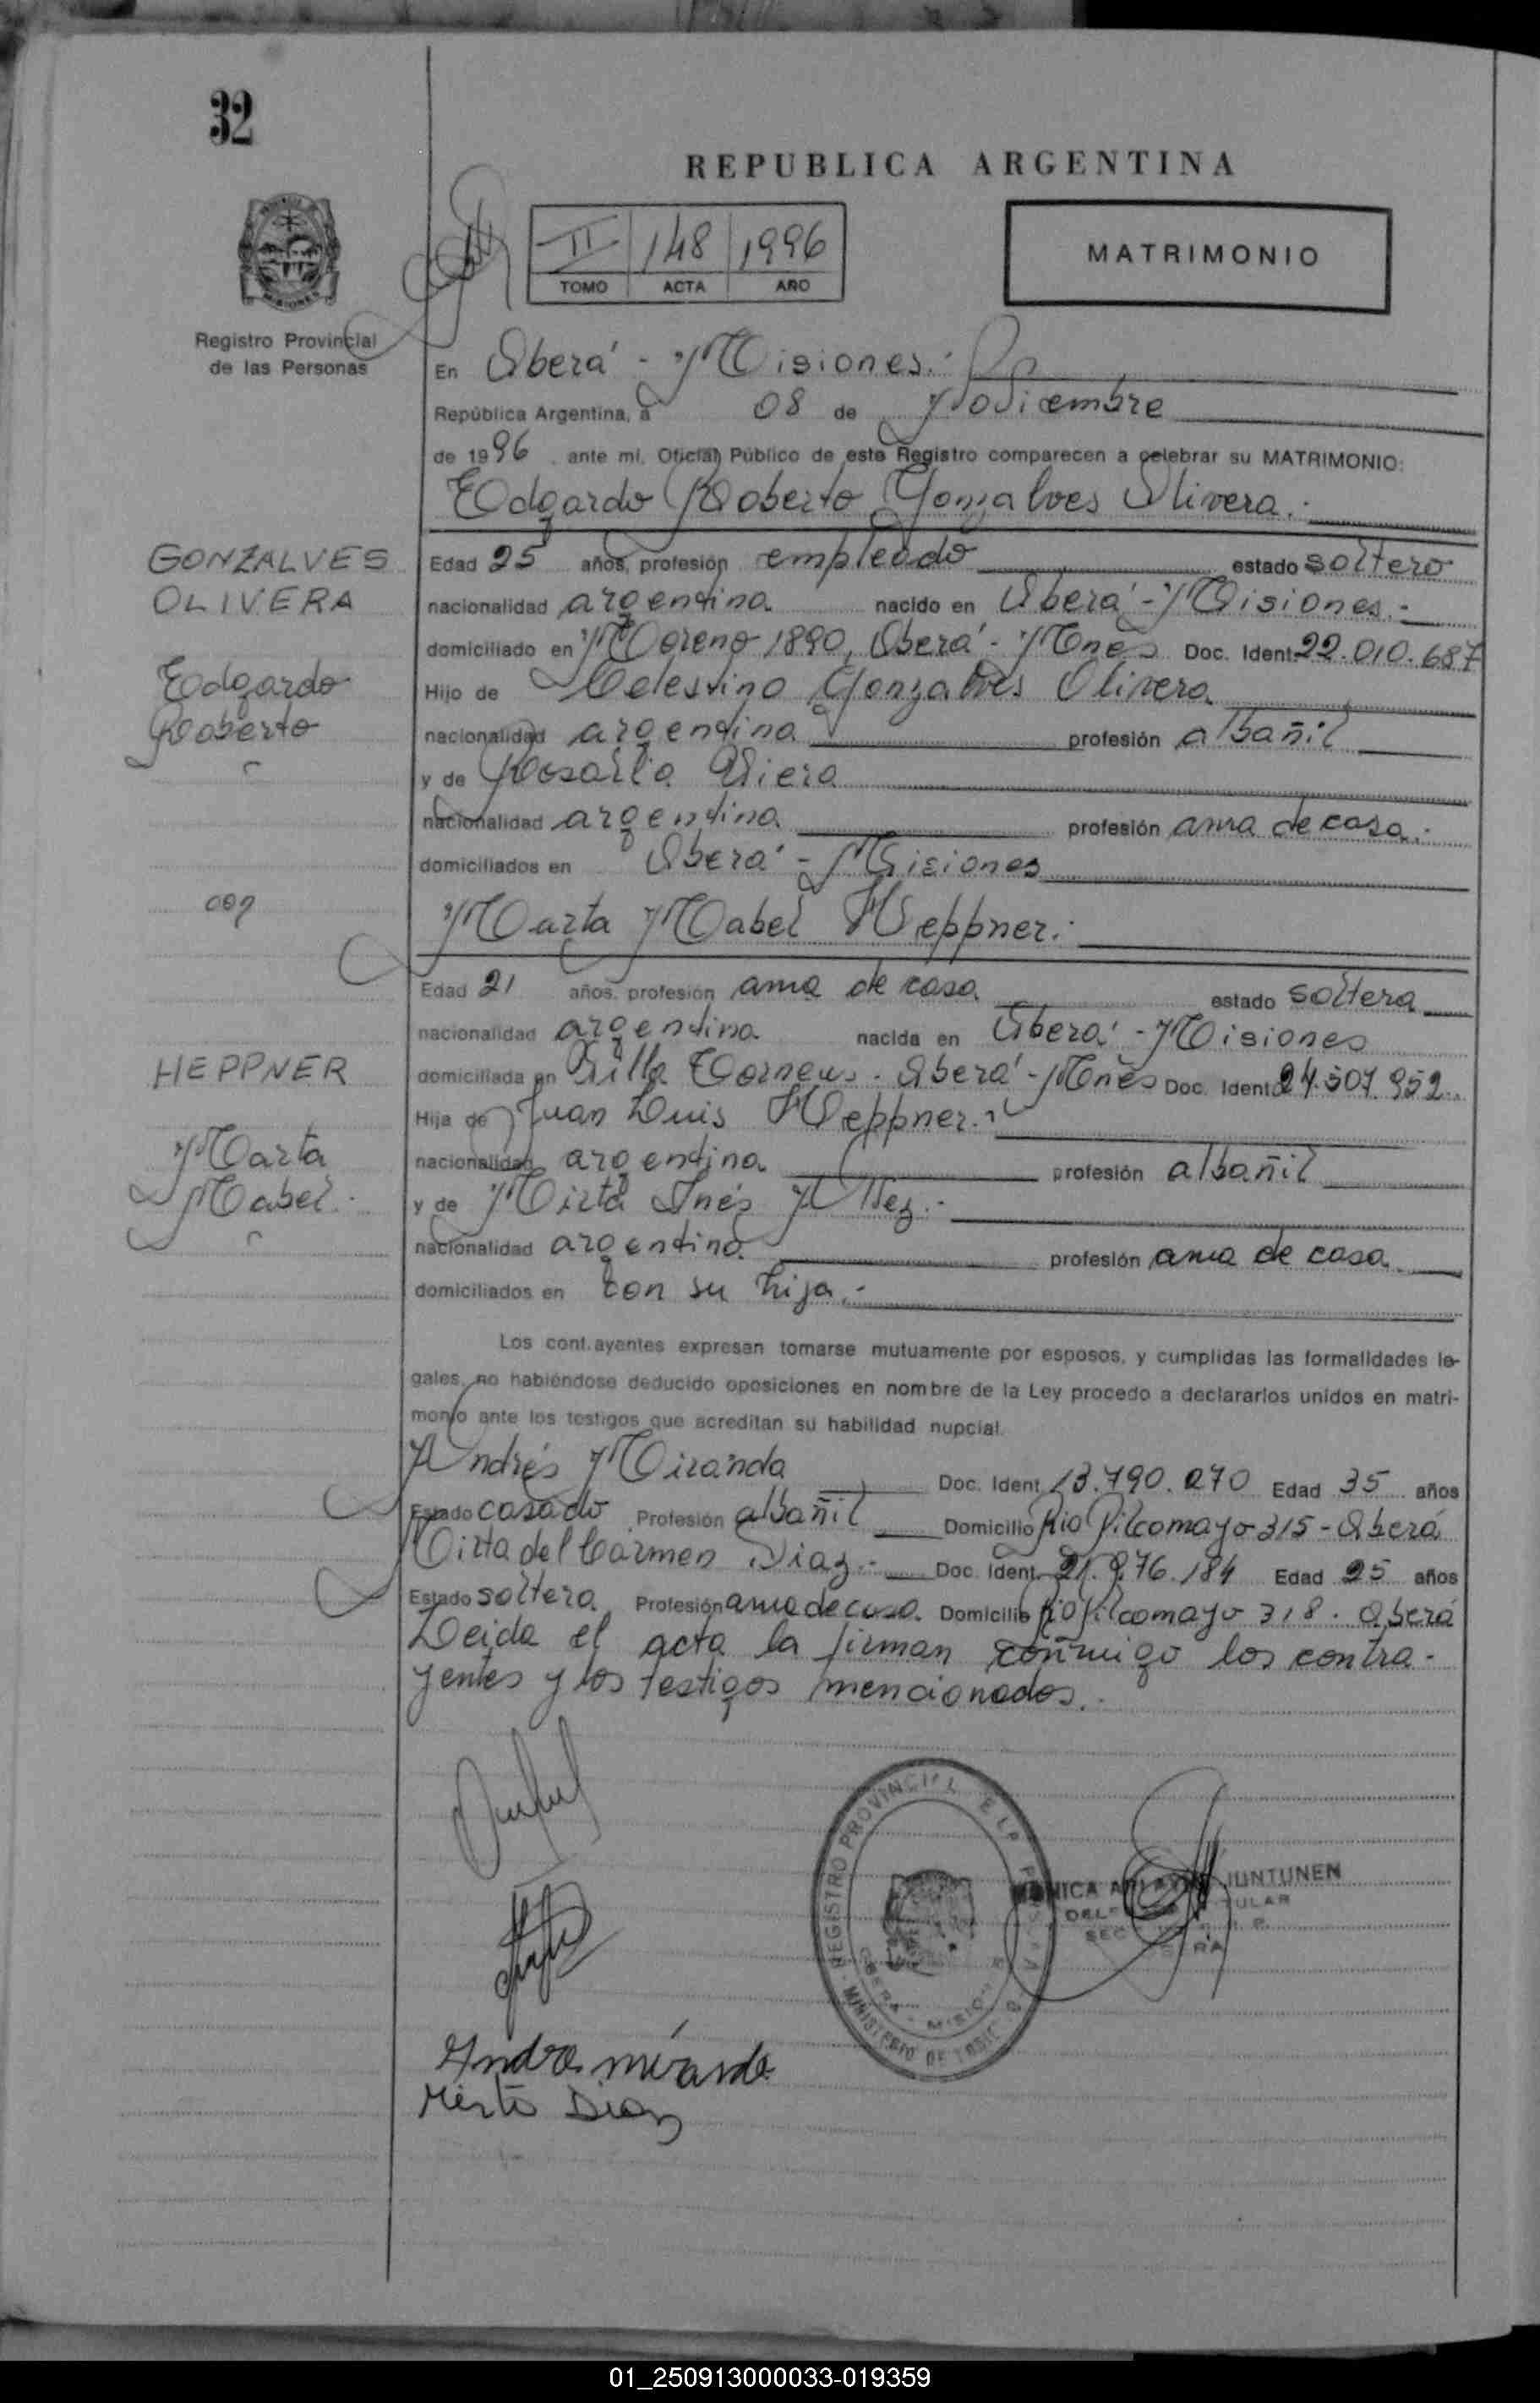 32
REPUBLICA ARGENTINA
II 148 1996
TOMO ACTA AÑO
MATRIMONIO
Registro Provincial
de las Personas
En Oberá - Misiones.
República Argentina, a 08 de Noviembre
de 1996 ante mí, Oficial Público de este Registro comparecen a celebrar su MATRIMONIO:
Edgardo Roberto Gonzalves Olivera.-
GONZALVES
OLIVERA
Edgardo
Roberto
Edad 25 años, profesión empleado estado soltero
nacionalidad argentina nacido en Oberá - Misiones.-
domiciliado en Moreno 1890, Oberá - Mnes Doc. Ident. 22.010.687
Hijo de Celestino Gonzalves Olivera
nacionalidad argentina profesión albañil
y de Rosalia Viera
nacionalidad argentina profesión ama de casa.-
domiciliados en Oberá - Misiones
con
Marta Mabel Heppner.-
Edad 21 años, profesión ama de casa estado soltera
nacionalidad argentina nacida en Oberá - Misiones
HEPPNER
Marta
Mabel.
domiciliada en Villa Oberá - Mnes Doc. Ident. 24.507.952
Hija de Juan Luis Heppner.-
nacionalidad argentina profesión albañil
y de Mirta Inés
nacionalidad argentina profesión ama de casa
domiciliados en con su hija.-
Los cont.ayentes expresan tomarse mutuamente por esposos, y cumplidas las formalidades le-
gales, no habiéndose deducido oposiciones en nombre de la Ley procedo a declararlos unidos en matri-
monio ante los testigos que acreditan su habilidad nupcial.
Andrés Miranda Doc. Ident. 13.790.270 Edad 35 años
Estado casado Profesión albañil Domicilio Rio Pilcomayo 315 - Oberá
Mirta del Carmen Diaz.- Doc. Ident. 21.976.184 Edad 25 años
Estado soltera Profesión ama de casa Domicilio Rio Pilcomayo 318. Oberá
Leida el acta la firman conmigo los contra-
yentes y los testigos mencionados.-
REGISTRO PROVINCIAL
MINISTERIO DE
JUNTUNEN
Andres miranda
Mirta Diaz
01_250913000033-019359